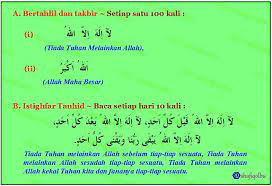 A. Bertahlil dan takbir ~ Setiap satu 100 kali :
(i) لَا إِلَهَ إِلَّا اللهُ
(Tiada Tuhan Melainkan Allah),
(ii) اَللهُ أَكْبَرُ
(Allah Maha Besar)
B. Istighfar Tauhid ~ Baca setiap hari 10 kali :
لَا إِلَهَ إِلَّا اللهُ قَبْلَ كُلِّ أَحَدٍ، لَا إِلَهَ إِلَّا اللهُ بَعْدَ كُلِّ أَحَدٍ،
لَا إِلَهَ إِلَّا اللهُ يَبْقَى رَبُّنَا وَيَفْنَى كُلُّ أَحَدٍ.
Tiada Tuhan melainkan Allah sebelum tiap-tiap sesuatu, Tiada Tuhan
melainkan Allah sesudah tiap-tiap sesuatu, Tiada Tuhan melainkan
Allah kekal Tuhan kita dan fananya tiap-tiap sesuatu.